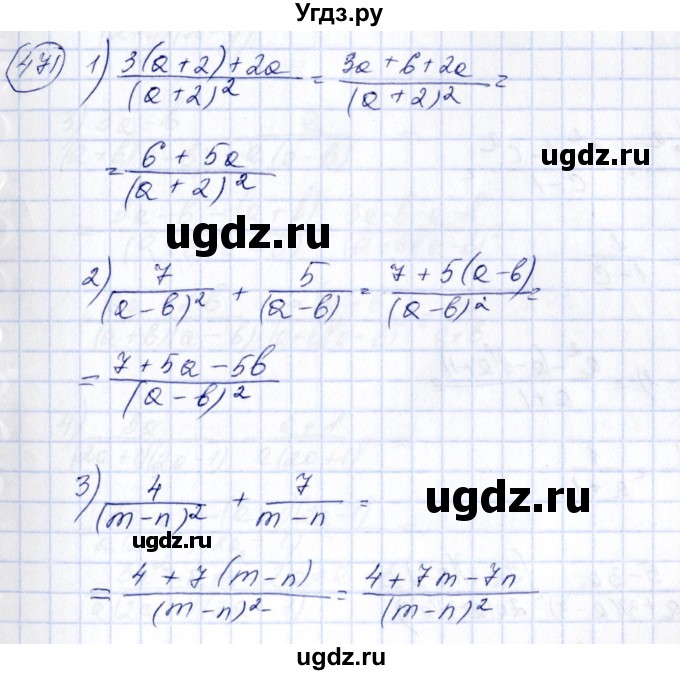 Угдз.ру
471) 1) (3(a+2)+2a)/(a+2)² = (3a+6+2a)/(a+2)² =
= (6+5a)/(a+2)²
ugdz.ru
ugdz.ru
ugdz.ru
2) 7/(a-b)² + 5/(a-b) = (7+5(a-b))/(a-b)² =
= (7+5a-5b)/(a-b)²
3) 4/(m-n)² + 7/(m-n) =
ugdz.ru
ugdz.ru
= (4+7(m-n))/(m-n)² = (4+7m-7n)/(m-n)²
ugdz.ru